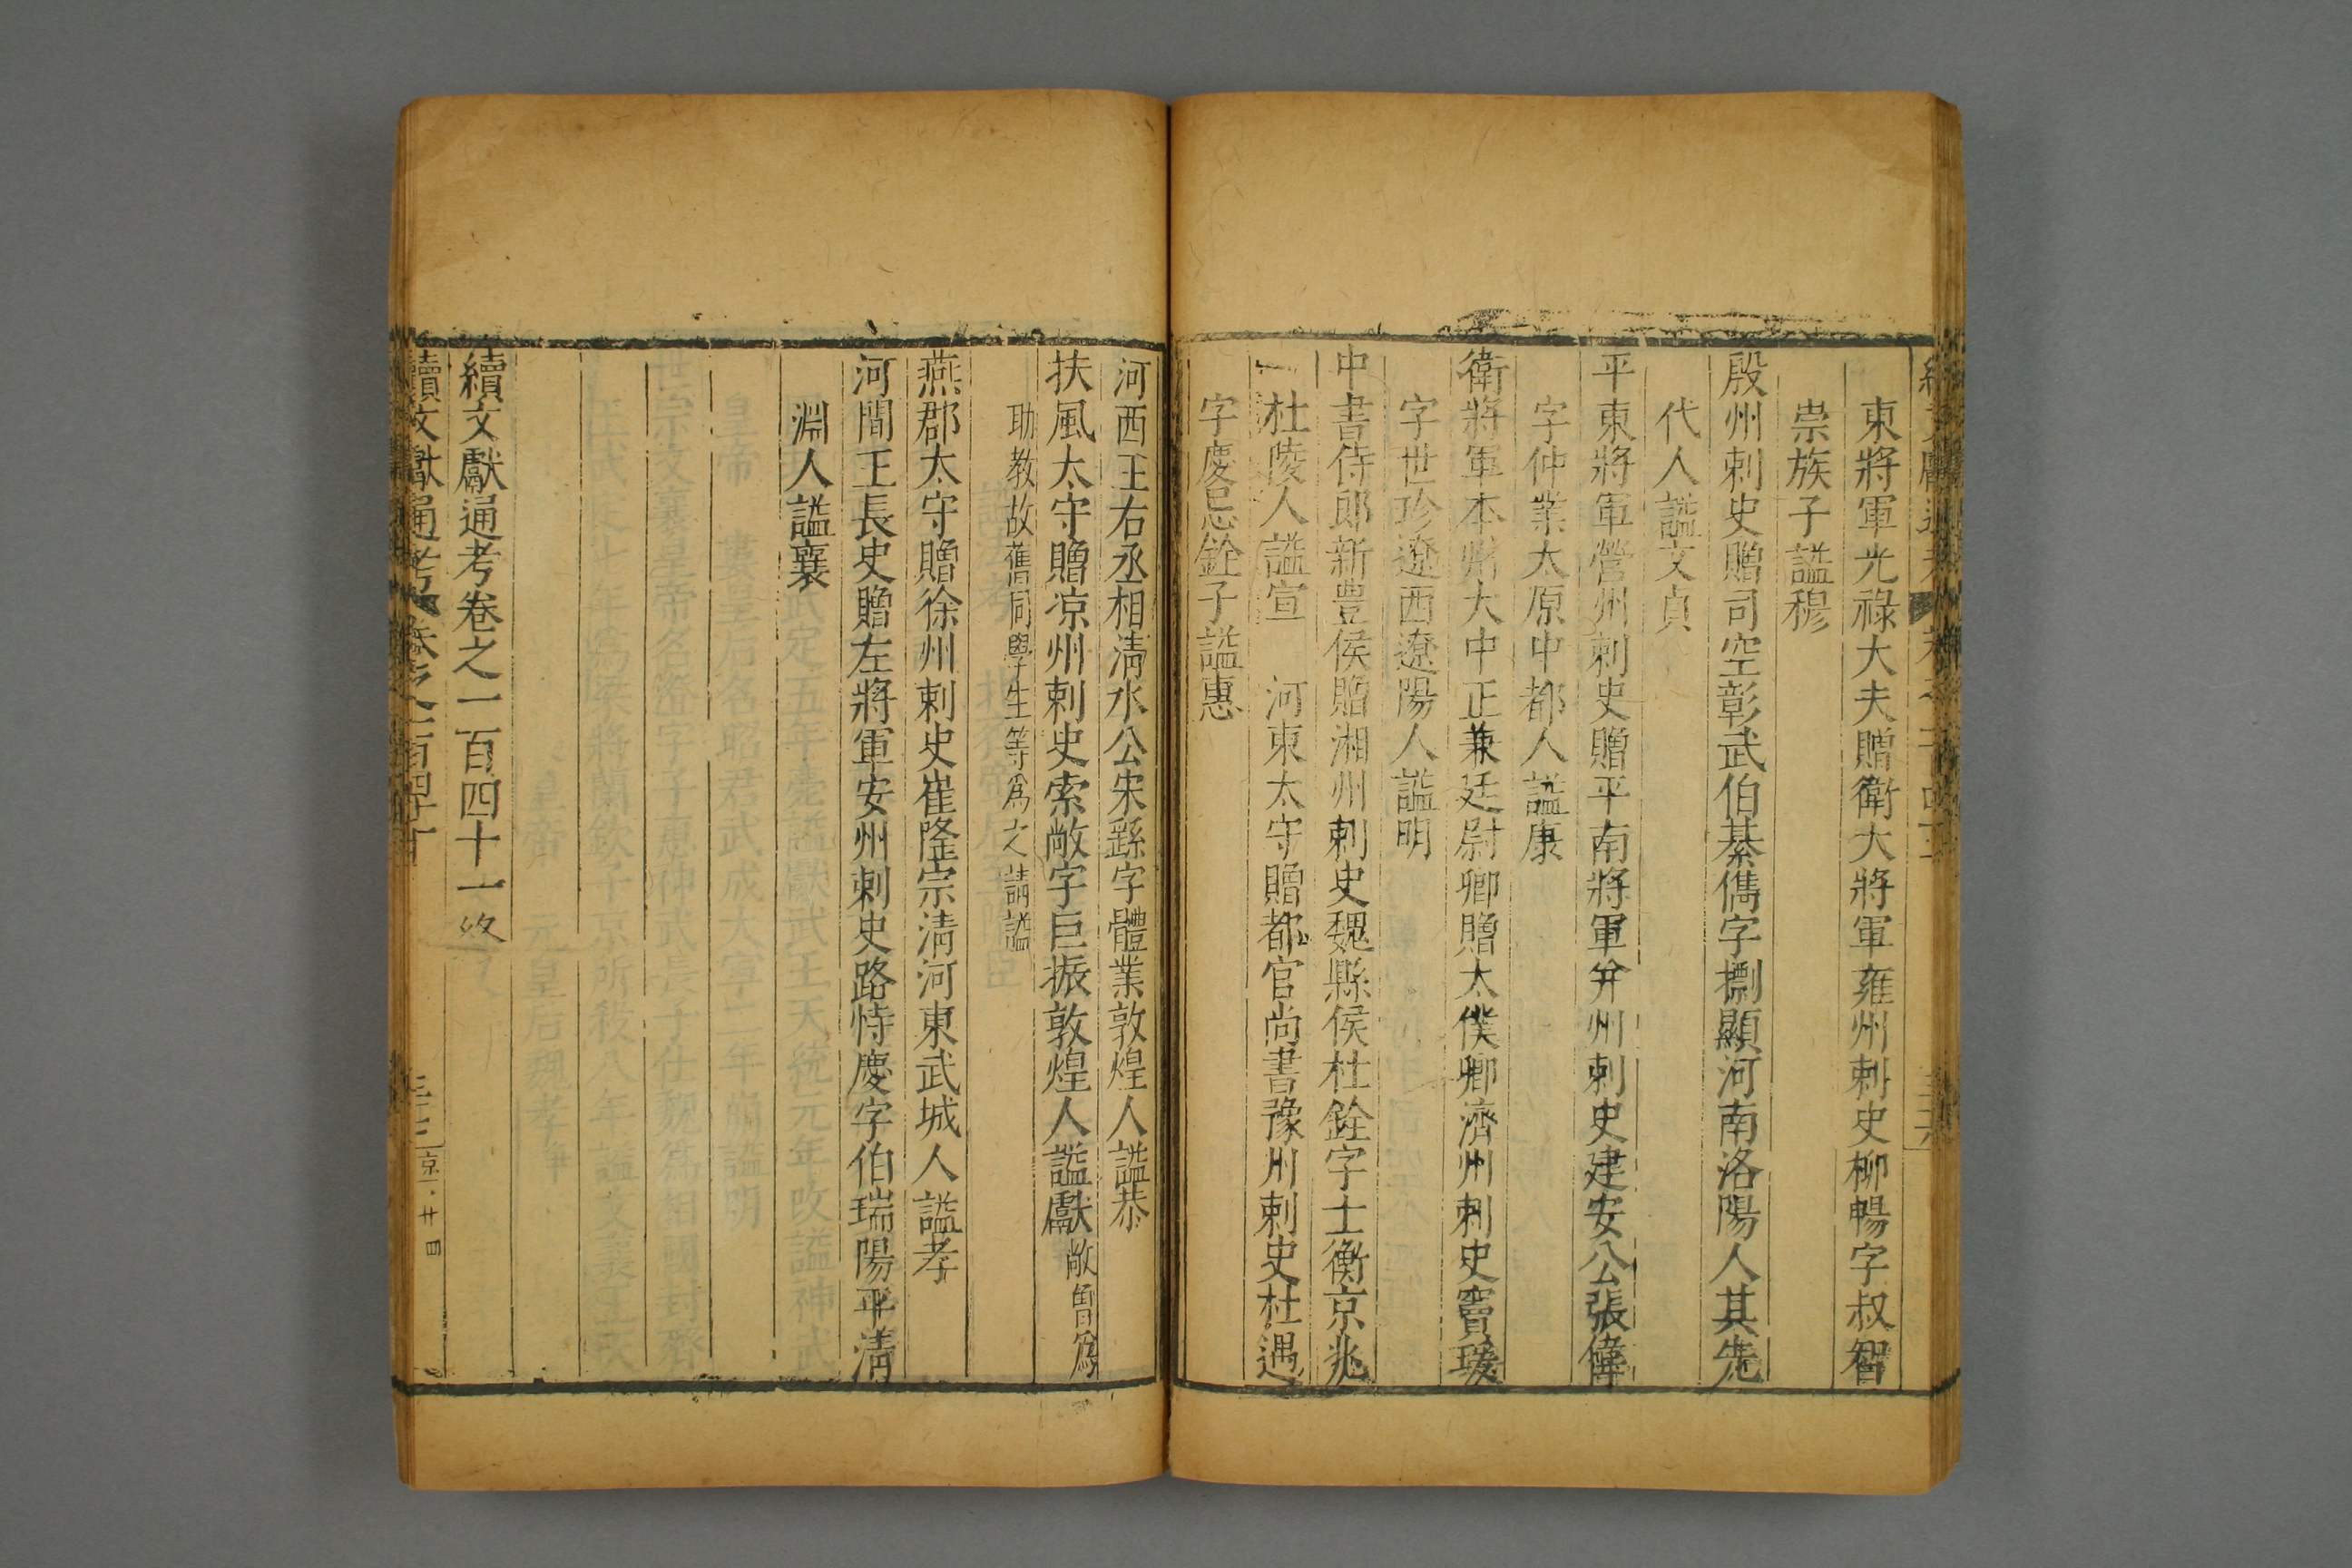 東將軍光祿大夫贈衛大將軍雍州刺史柳暢字叔智
崇族子謚穆
殷州刺史贈司空彰武伯綦儁字摽顯河南洛陽人其先
代人謚文貞
平東將軍營州刺史贈平南將軍并州刺史建安公張偉
字仲業太原中都人謚康
衛將軍本州大中正兼廷尉卿贈太僕卿濟州刺史竇瑗
字世珍遼西遼陽人謚明
中書侍郎新豊侯贈湘州刺史魏縣侯杜銓字士衡京兆
杜陵人謚宣 河東太守贈都官尚書豫州刺史杜遇
字慶忌銓子謚惠
河西王右丞相清水公宋繇字體業敦煌人謚恭
扶風太守贈凉州刺史索敞字巨振敦煌人謚獻敞曾爲
助教故舊同學生等爲之請謚
燕郡太守贈徐州刺史崔隆宗清河東武城人謚孝
河間王長史贈左將軍安州刺史路恃慶字伯瑞陽平清
淵人謚襄
續文獻通考卷之一百四十一終
續文獻通考
京 廿四